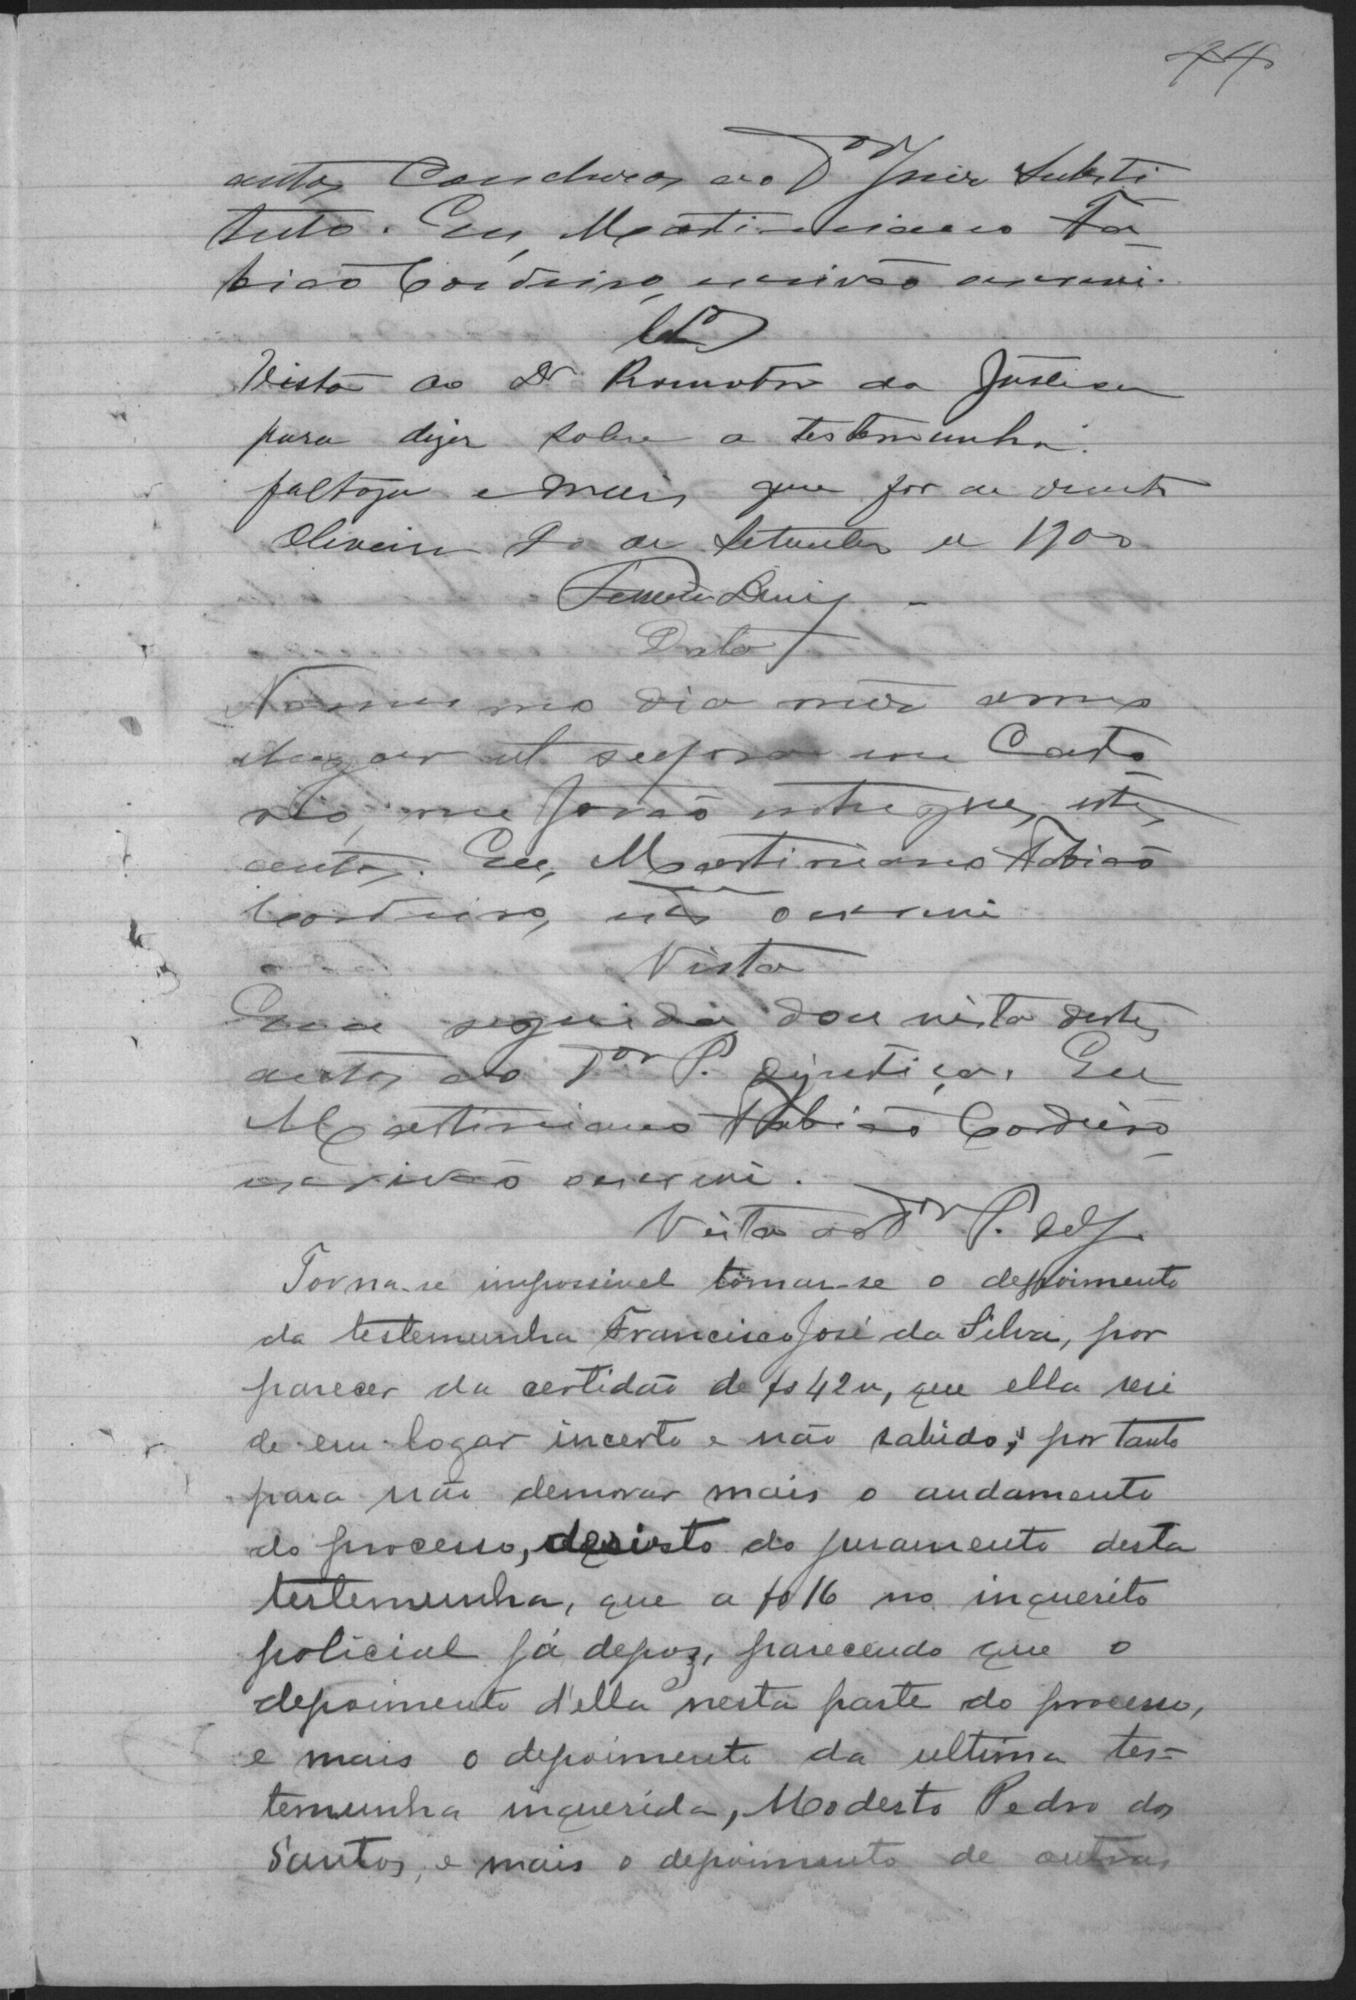 44
autos Conclusos ao Dor Juiz Substi
tuto. Eu, Martiniano Fa
bião Cordeiro, escrivão escrevi.
Clos
Vista ao Dr Promotor da Justiça
para dizer sobre a testemunha
faltosa e mais que for de direito
Oliveira de Setembro de 1900
Data
No mesmo dia mez anno
lugar ut supra em Carto
rio, me forão entregues estes
autos. Eu, Martiniano Fabião
Cordeiro, escrevi
Vista
Em seguida dou vista destes
autos ao Dor P. da justiça. Eu
Martiniano Fabião Cordeiro
escrivão escrevi.
Vista ao Dor P. da J.
Torna-se impossivel tomar-se o depoimento
da testemunha Francisco José da Silva, por
parecer da certidão de fs 42v, que ella resi
de em logar incerto e não sabido; por tanto
para não demorar mais o andamento
do processo, desisto do juramento desta
testemunha, que a fs 16 no inquerito
policial já depoz, parecendo que o
depoimento d'ella nesta parte do processo,
e mais o depoimento da ultima tes=
temunha inquerida, Modesto Pedro dos
Santos, e mais o depoimento de outras